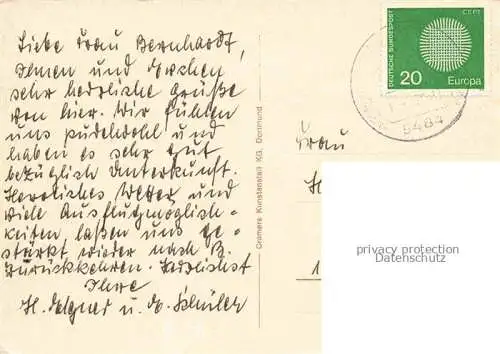 Liebe Frau Bernhardt,
Ihnen und
sehr herzliche Grüße
von hier. Wir fühlen
uns pudelwohl und
haben es sehr gut
bezüglich Unterkunft.
Herrliches Wetter und
viele Ausflugmöglich-
keiten laßen uns ge-
stärkt wieder nach B.
zurückkehren. Herzlichst
Ihre
H. u. E. Schüler
Cramers Kunstanstalt KG, Dortmund
DEUTSCHE BUNDESPOST
CEPT
20 Europa
5484
Frau
H
1
privacy protection
Datenschutz